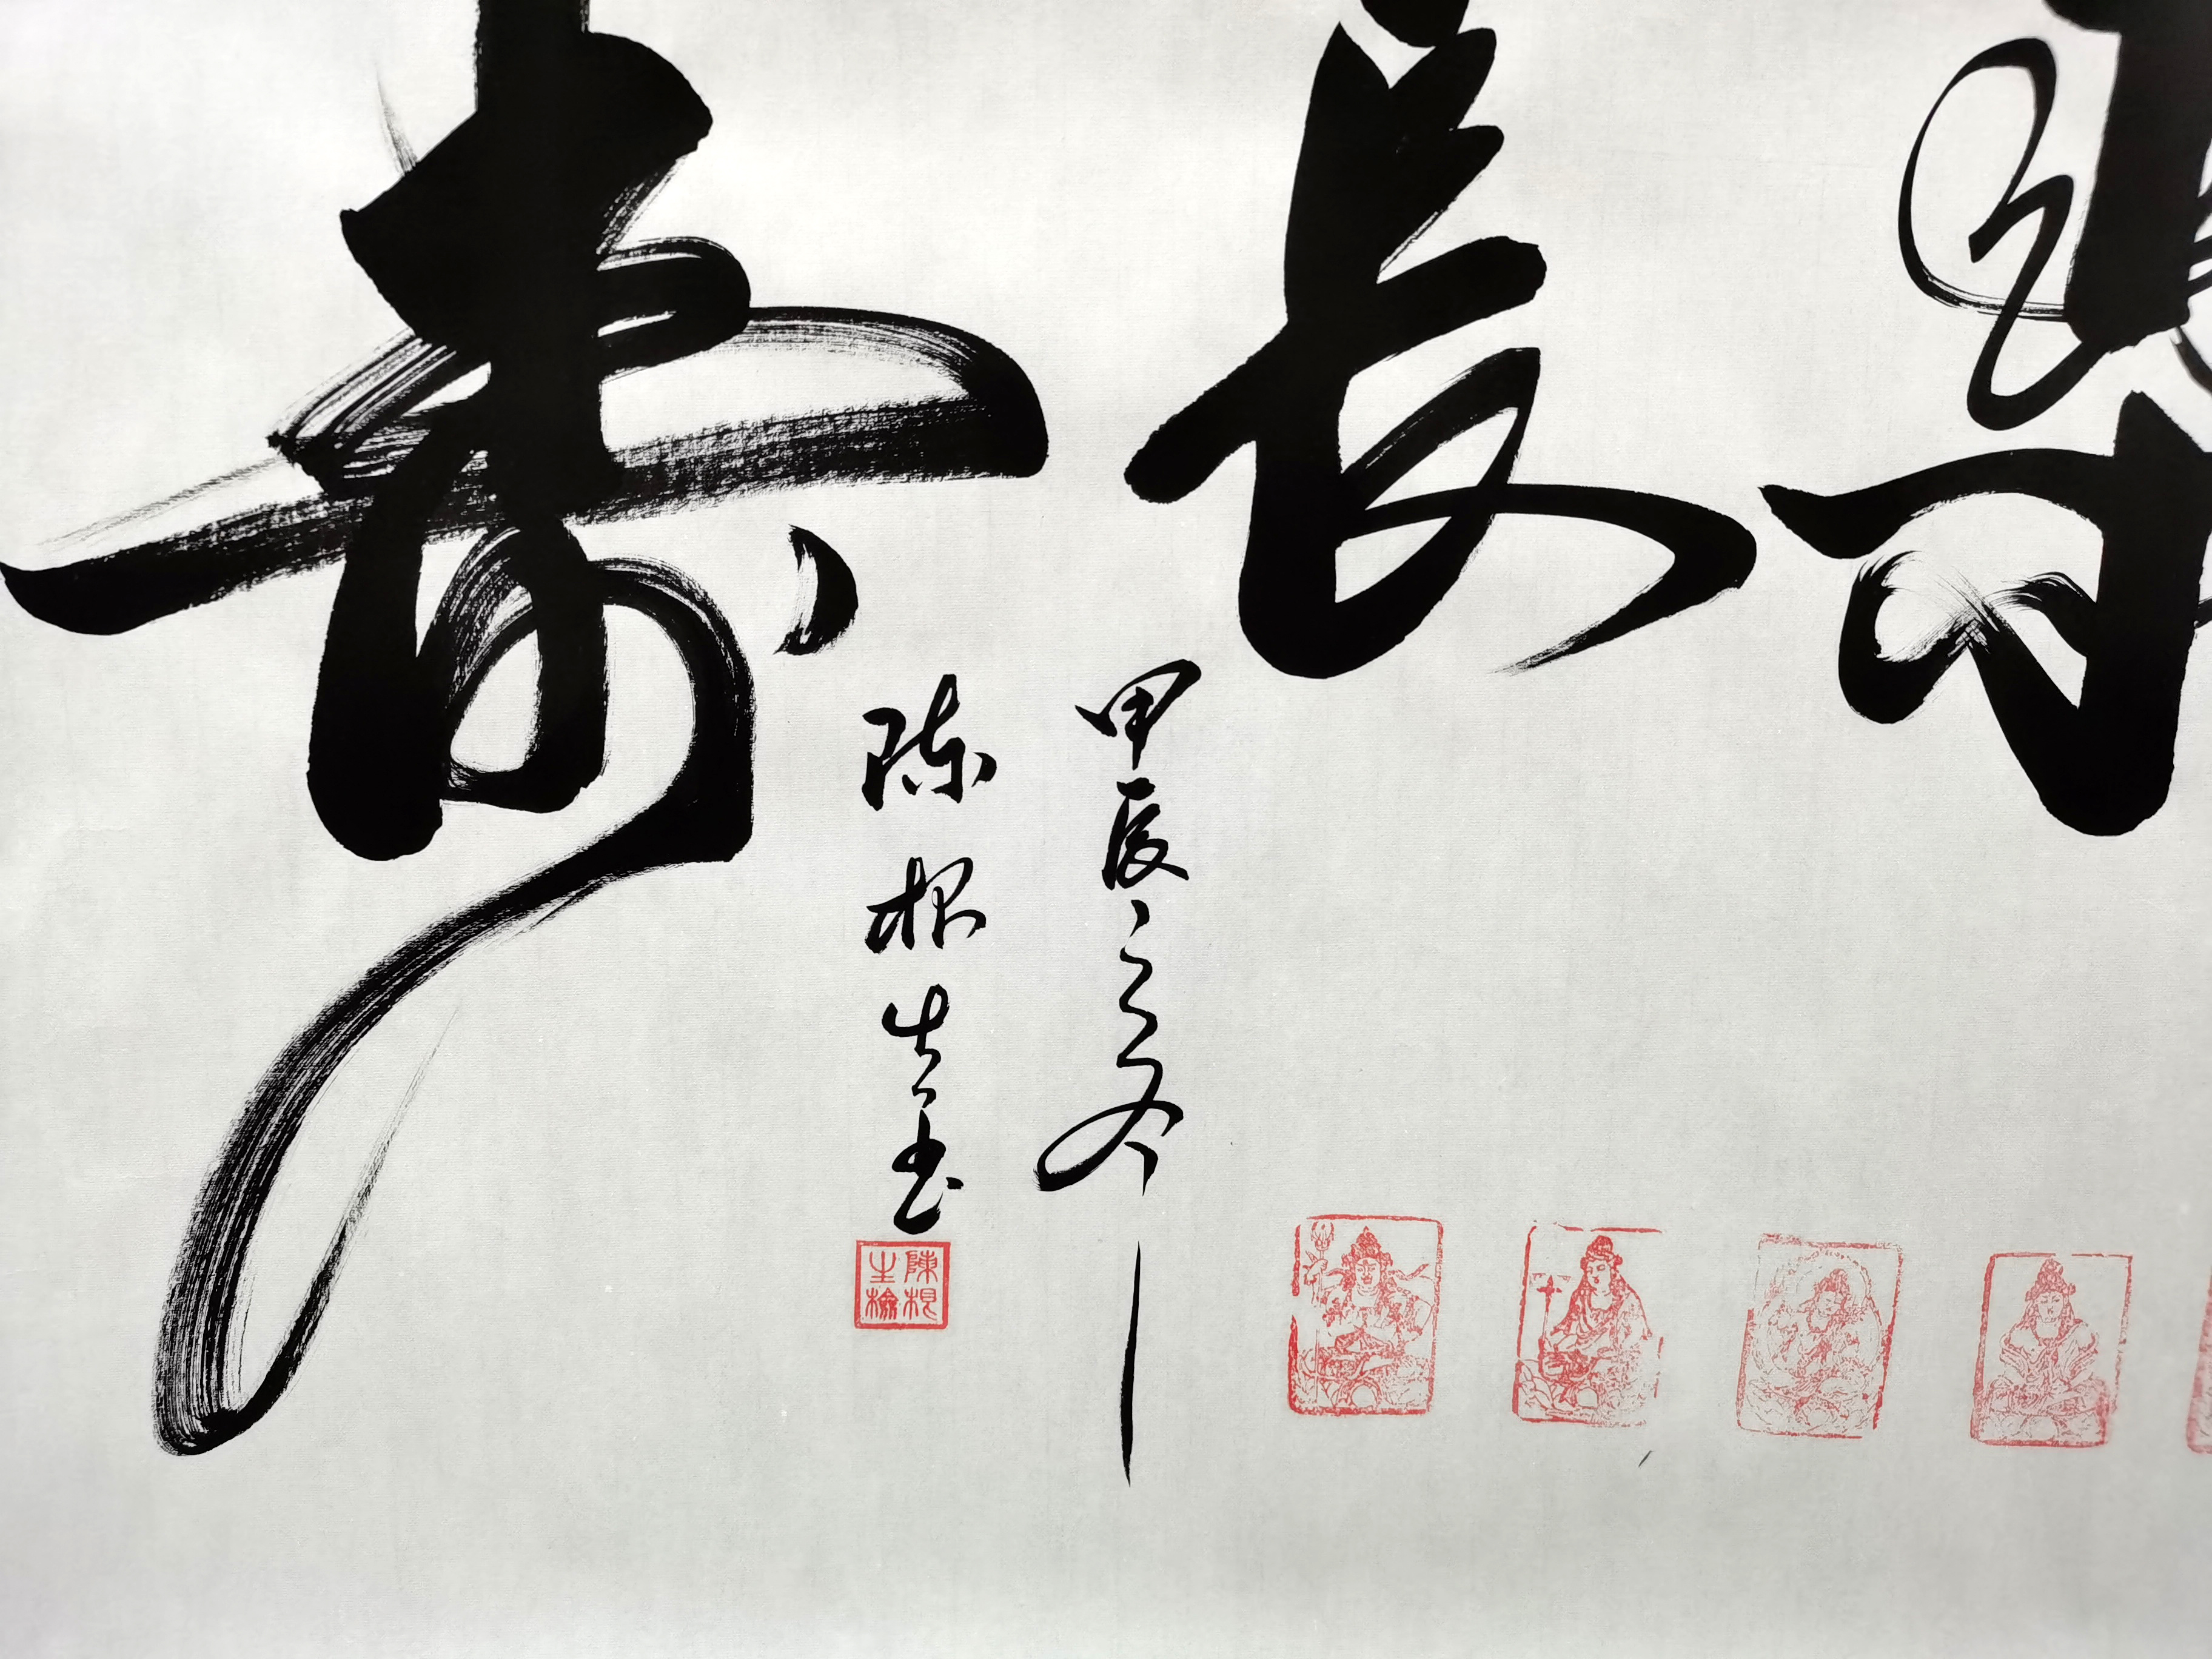 長壽
甲辰之冬
陈根生书
陳根生檢